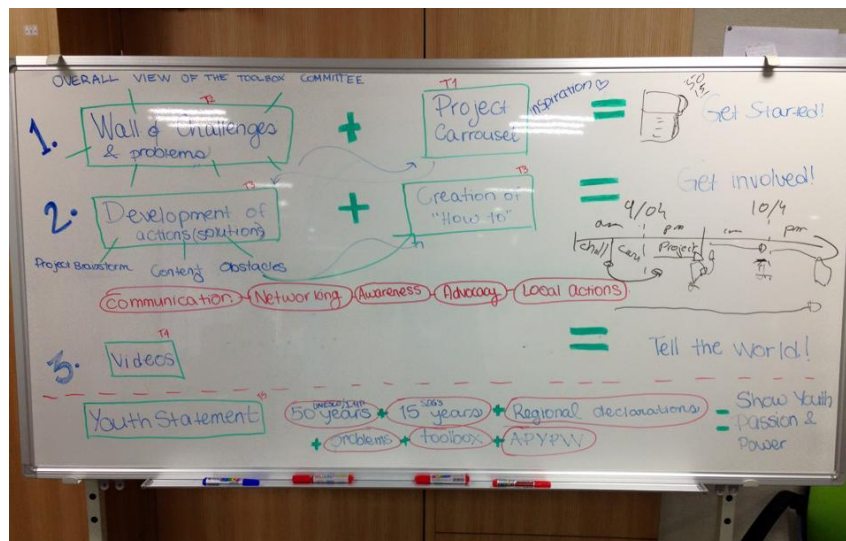 OVERALL VIEW OF THE TOOLBOX COMMITTEE
T2
T1
1. Wall of Challenges
& problems
+
Project
Carrousel
inspiration ♡
=
50
15
Get Started!
2.
T3
Development of
actions (solution)
+
T3
Creation of
"How to"
=
Get involved!
Project Brainstorm
Content
Obstacles
9/04
10/4
am
pm
pm
Chall
Project
Communication
Networking
Awareness
Advocacy
Local actions
3.
T4
Videos
=
Tell the World!
Youth Statement
50 years
+
SDG's
15 years
+
Regional declarations
+
problems
+
toolbox
+
APYPW
=
Show Youth
Passion &
Power